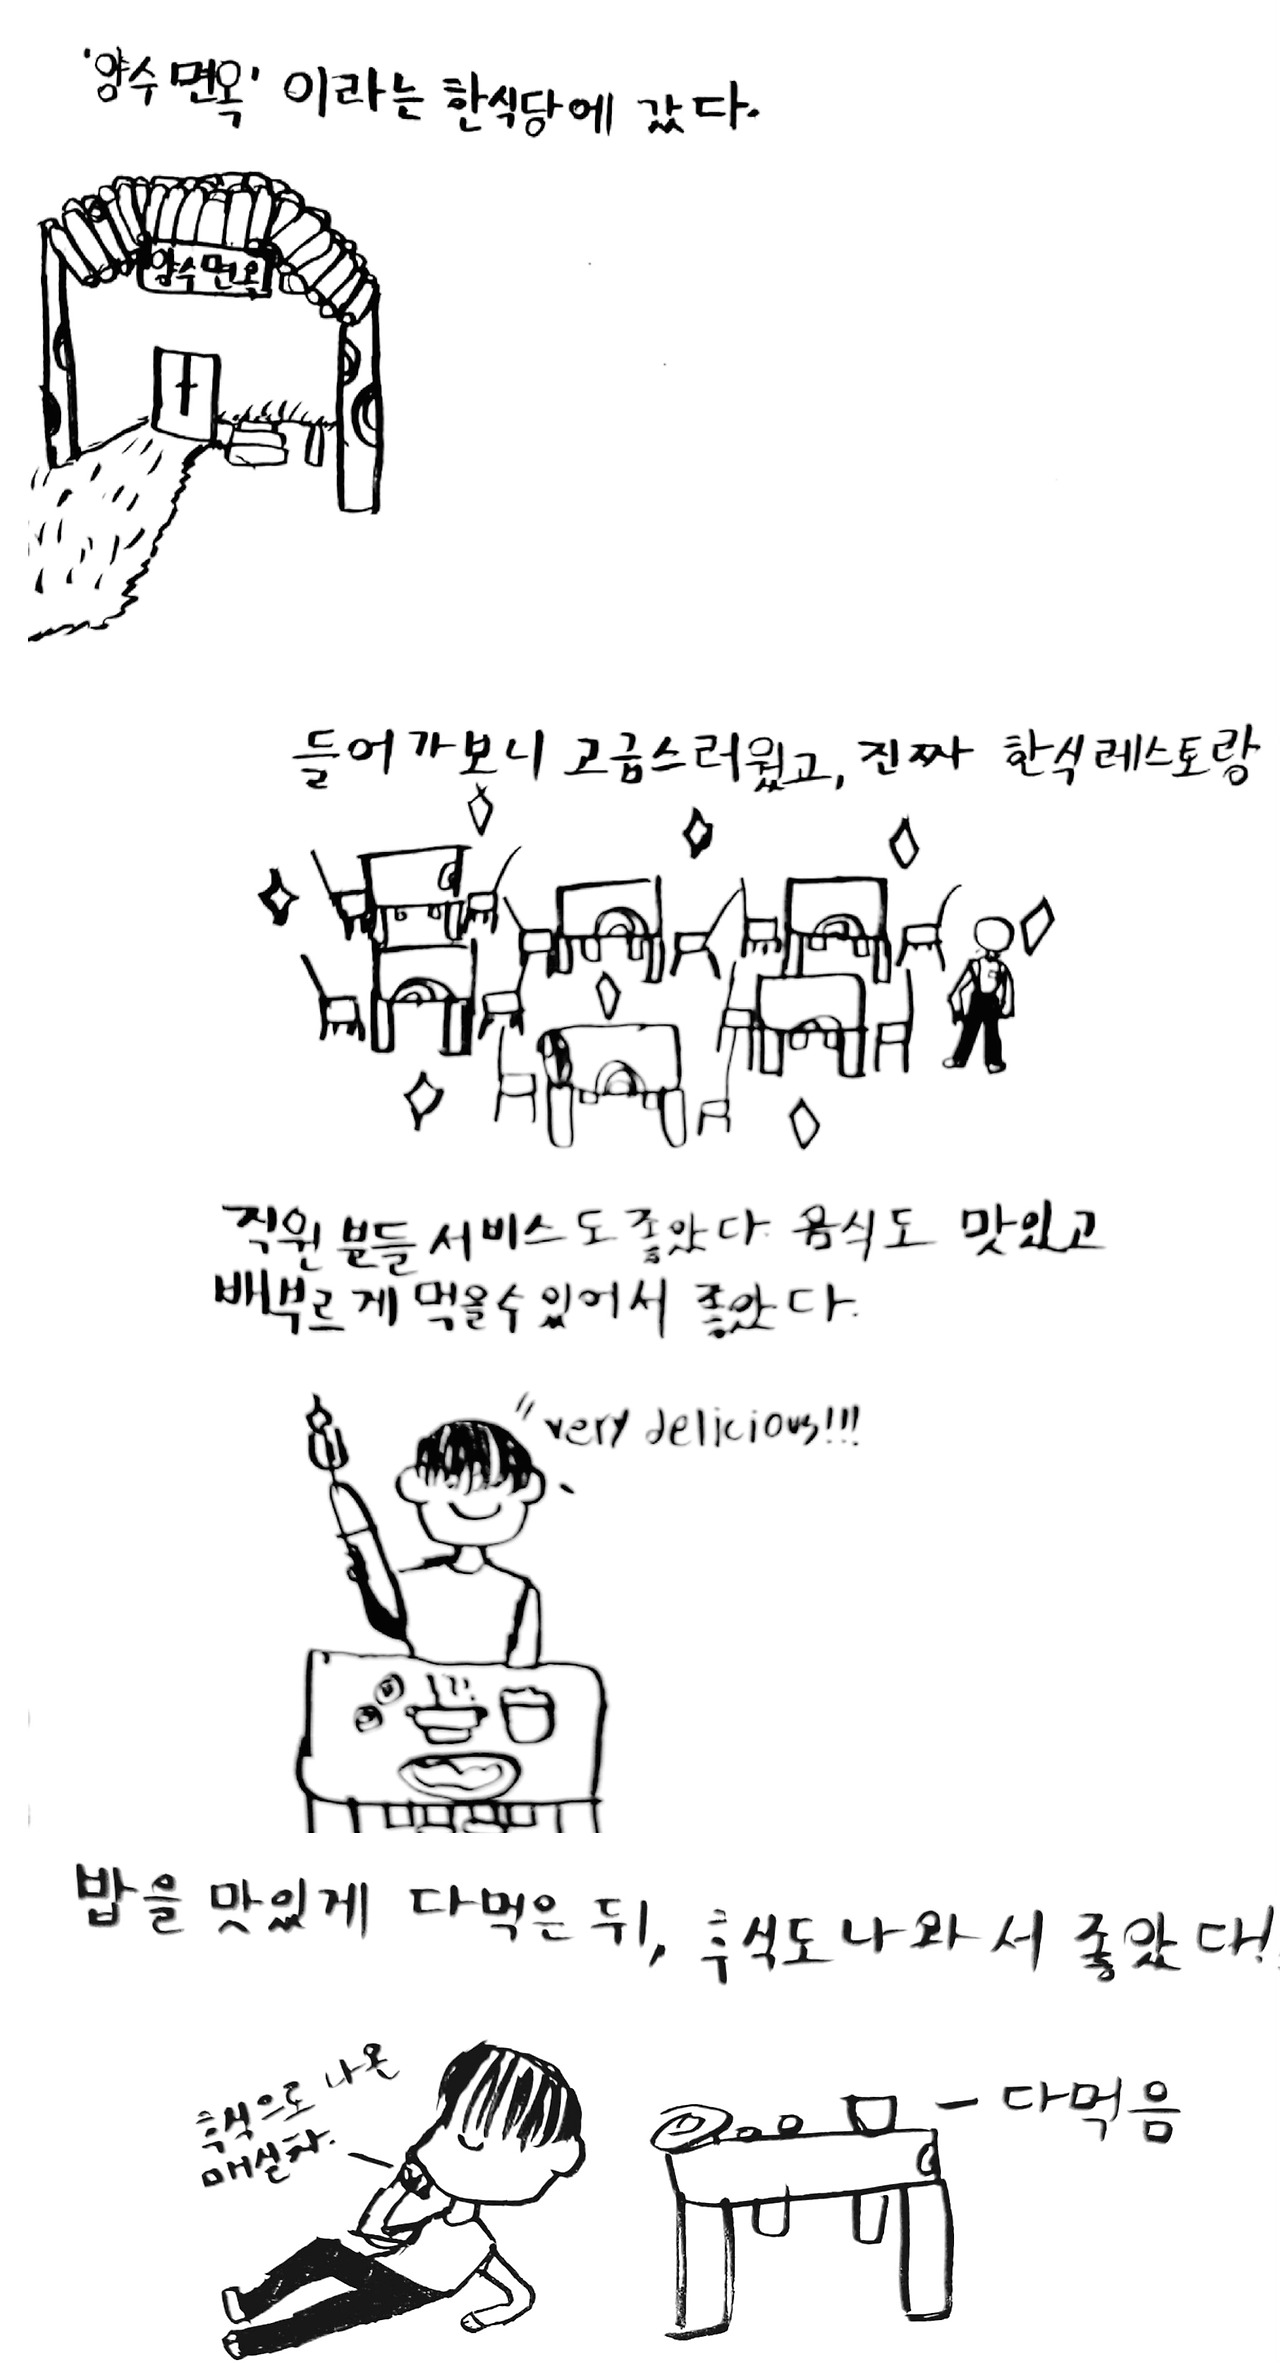 '양수면옥' 이라는 한식당에 갔다.
양수면옥
들어가보니 고급스러웠고, 진짜 한식레스토랑
직원분들 서비스도 좋았다. 음식도 맛있고
배부르게 먹을수있어서 좋았다.
"very delicious!!!
밥을 맛있게 다먹은 뒤, 후식도 나와서 좋았다!
후식으로 나온
매실차.
다먹음